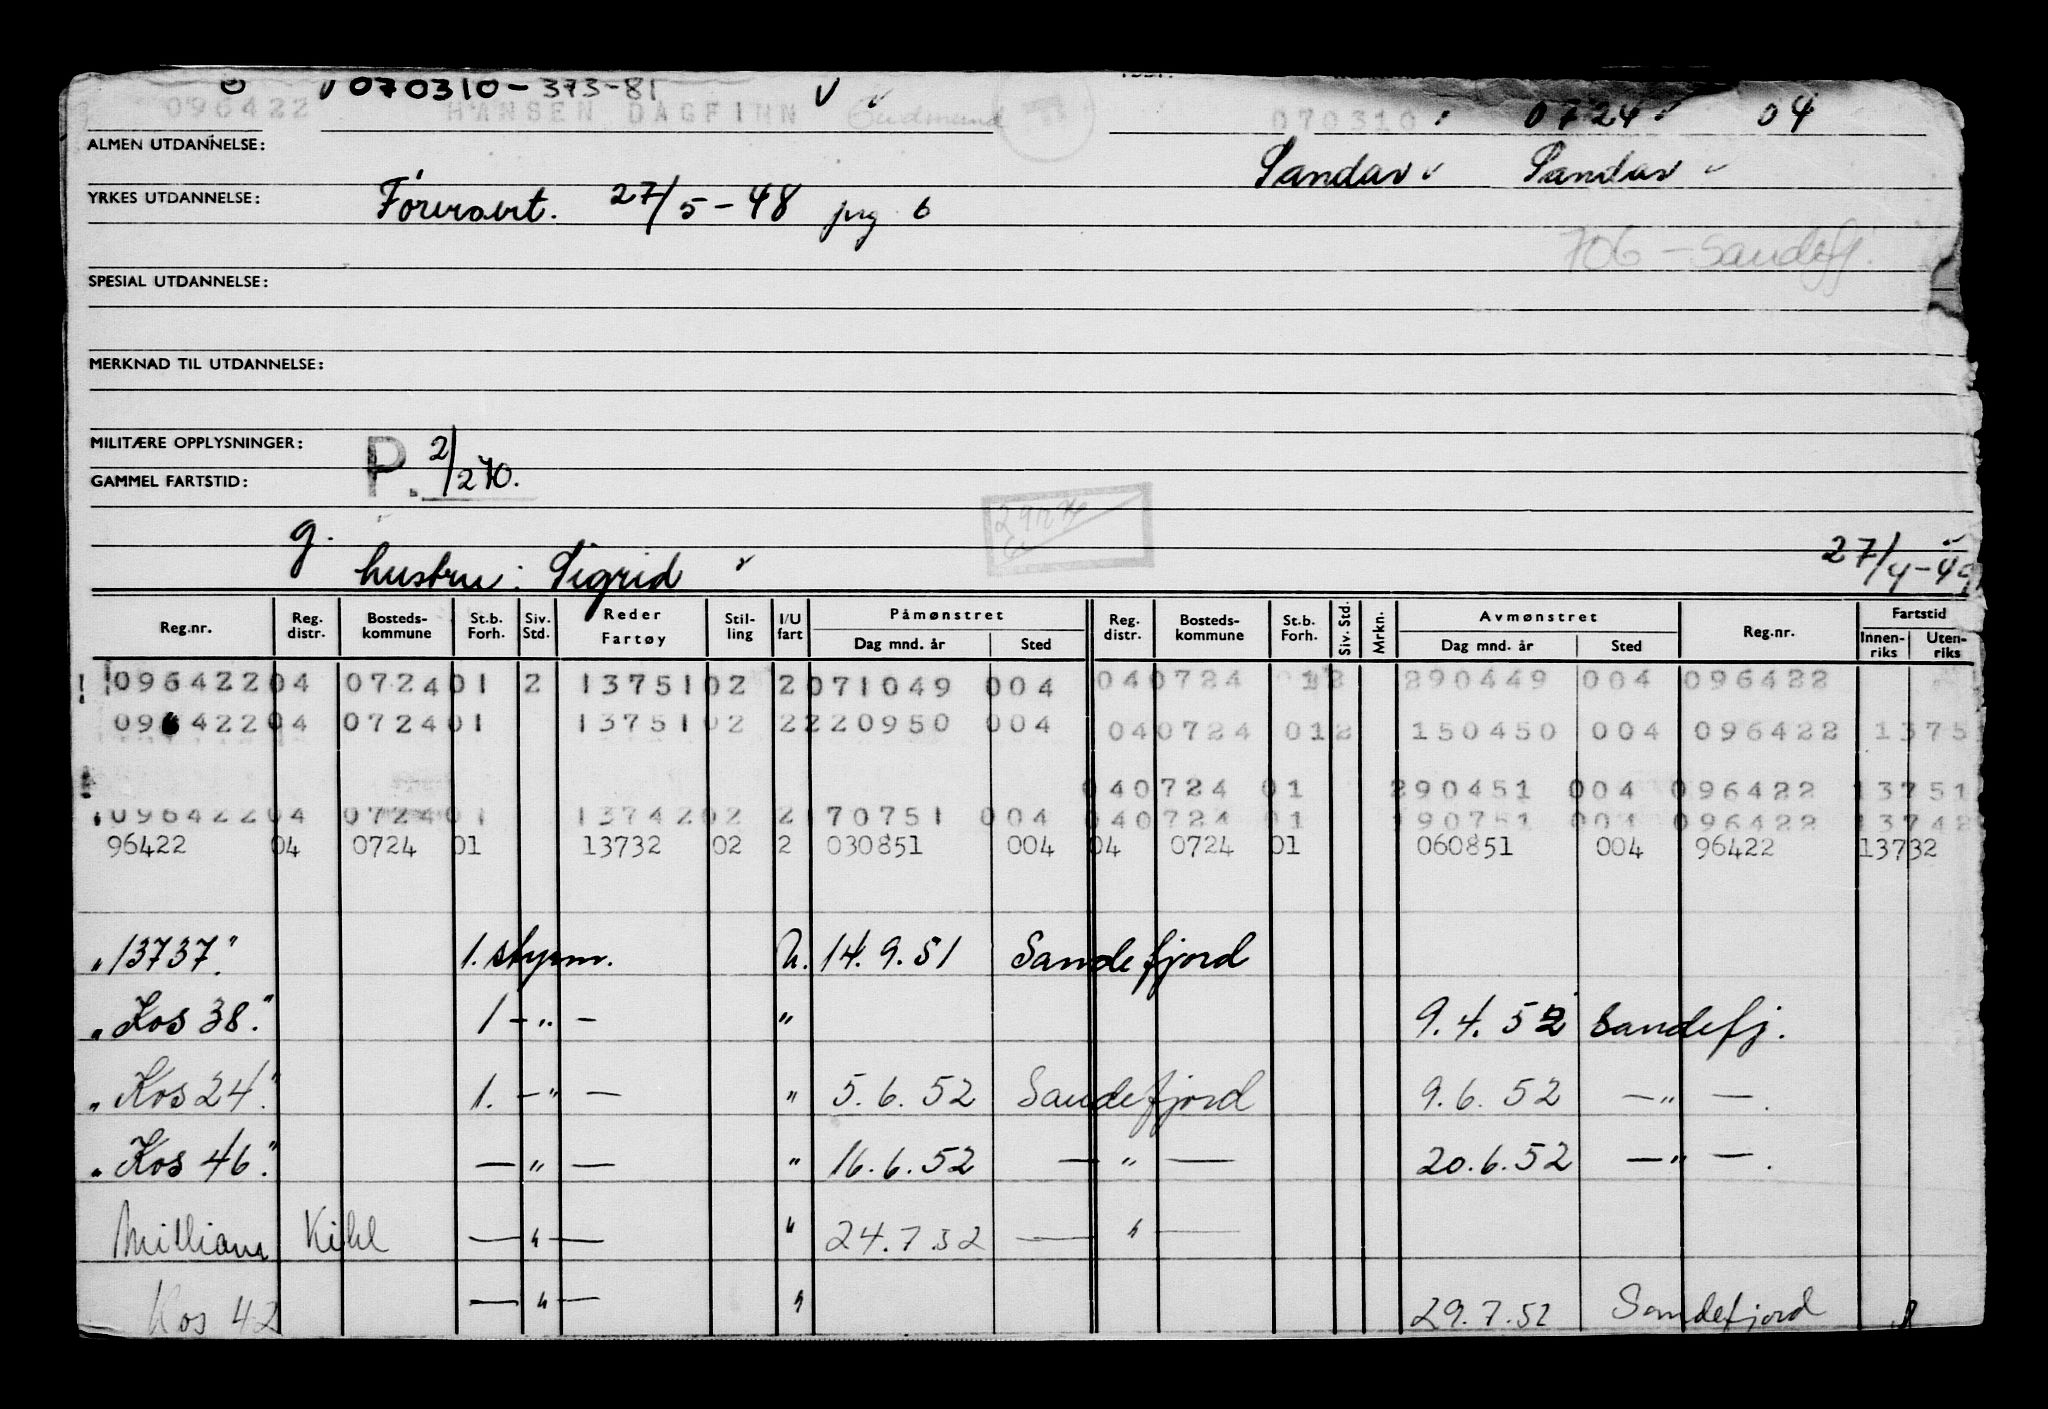 070310-373-81
096422 HANSEN DAGFINN Gudmund 070310 0724 04
ALMEN UTDANNELSE: Sandar Sandar
YRKES UTDANNELSE: Førersert. 27/5-48 jrg 6
706 - Sandefj.
SPESIAL UTDANNELSE:
MERKNAD TIL UTDANNELSE:
MILITÆRE OPPLYSNINGER: P. 2/270.
GAMMEL FARTSTID:
g. hustru: Sigrid 27/4-49
Reg.nr. Reg. distr. Bosteds-kommune St.b. Forh. Siv. Std. Reder Fartøy Stil-ling I/U fart Påmønstret Dag mnd. år Sted Reg. distr. Bosteds-kommune St.b. Forh. Siv. Std. Mrkn. Avmønstret Dag mnd. år Sted Reg.nr. Fartstid Innen-riks Uten-riks
096422 04 0724 01 2 13751 02 2 071049 004 04 0724 012 290449 004 096422
096422 04 0724 01 13751 02 2 220950 004 04 0724 012 150450 004 096422 1375
04 0724 01 290451 004 096422 13751
096422 04 0724 01 13742 02 2 170751 004 04 0724 01 190751 004 096422 13742
96422 04 0724 01 13732 02 2 030851 004 04 0724 01 060851 004 96422 13732
"13737." 1. styrm. U. 14.9.51 Sandefjord
"Kos 38." 1 - " - " 9.4.52 Sandefj.
"Kos 24." 1. - " - " 5.6.52 Sandefjord 9.6.52 - " -.
"Kos 46." - " - " 16.6.52 - " - 20.6.52 - " -.
William Kihl - " - " 24.7.52 - " -
Kos 42 - " - " 29.7.52 Sandefjord